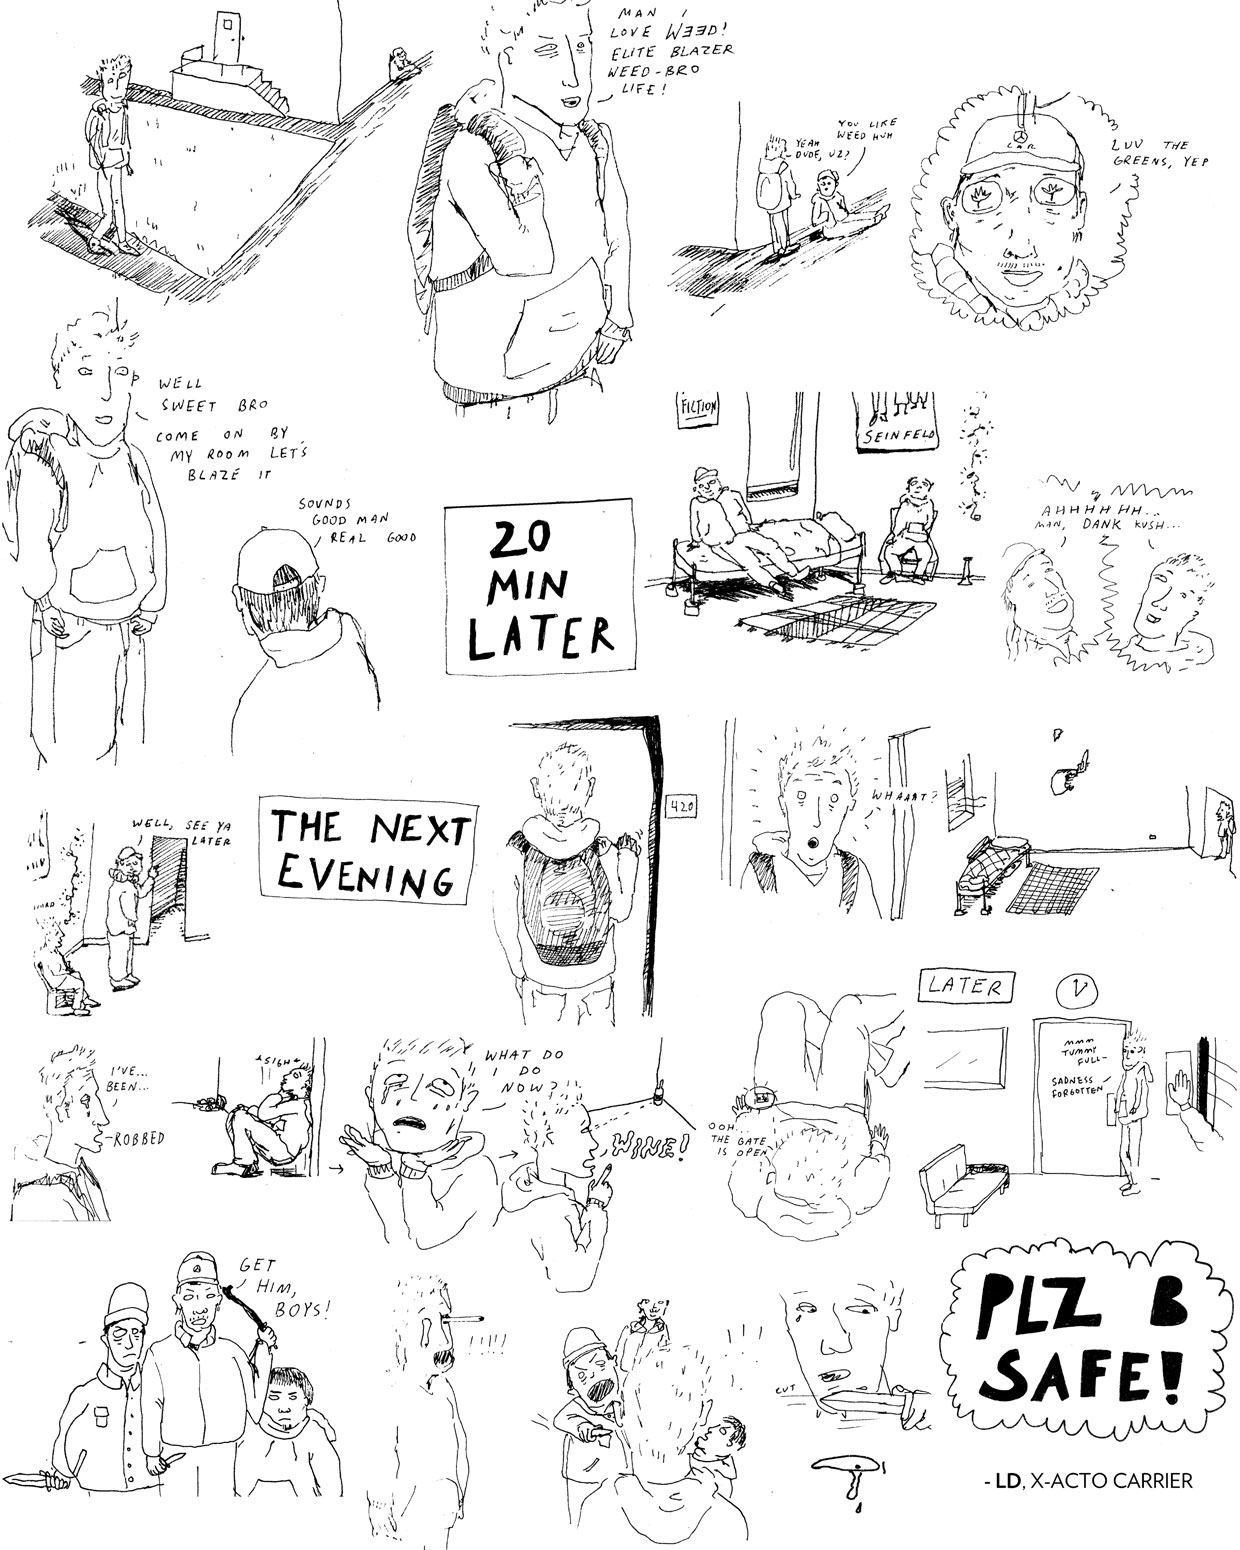 MAN I
LOVE WEED!
ELITE BLAZER
WEED-BRO
LIFE!
YEAH
DUDE, U2?
YOU LIKE
WEED HUH
CAR
LUV THE
GREENS, YEP
WELL
SWEET BRO
COME ON BY,
MY ROOM LET'S
BLAZE IT
SOUNDS
GOOD MAN
REAL GOOD
20
MIN
LATER
FICTION
SEINFELD
AHHHHHH...
MAN, DANK KUSH...
WELL, SEE YA
LATER
THE NEXT
EVENING
420
WHAAAT?
I'VE...
BEEN...
-ROBBED
*SIGH*
WHAT DO
I DO
NOW?
WINE!
OOH...
THE GATE
IS OPEN
LATER
MMM
TUMMY
FULL-
SADNESS
FORGOTTEN
GET
HIM,
BOYS!
!!!!
CUT
PLZ B
SAFE!
- LD, X-ACTO CARRIER